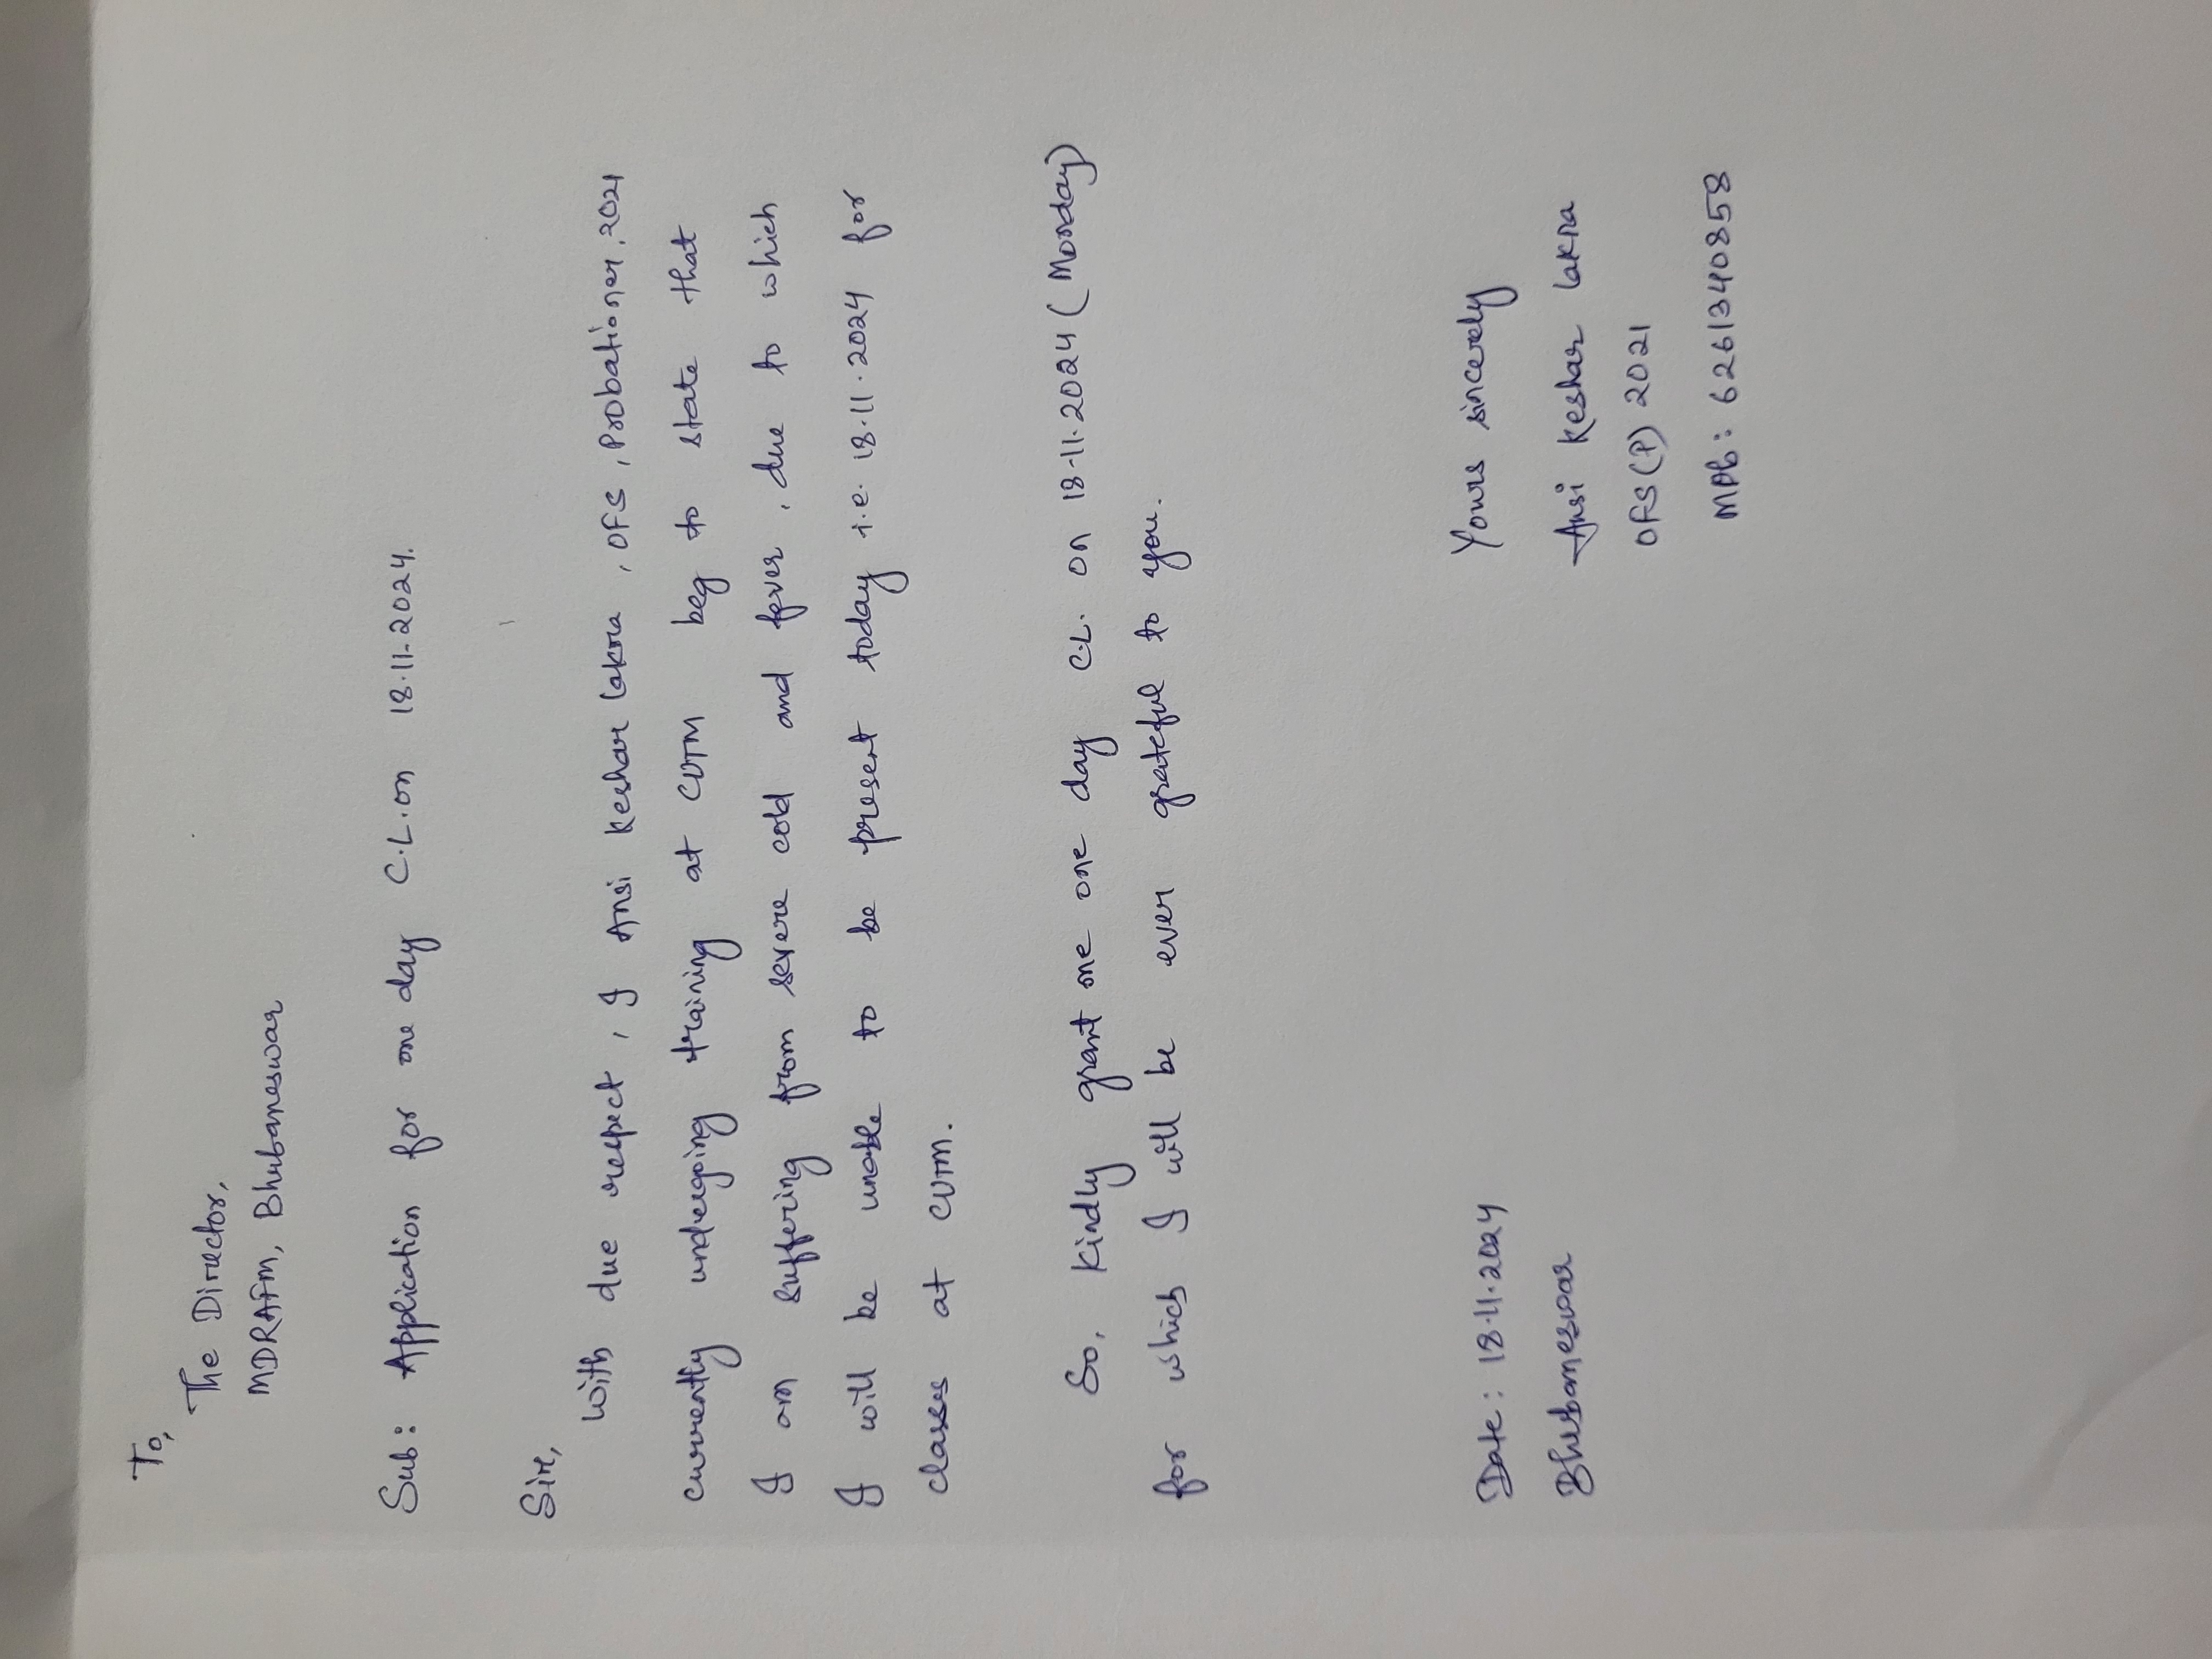 To,
The Director,
MDRAFM, Bhubaneswar
Sub: Application for one day C.L. on 18.11.2024.
Sir,
With due respect, I Ansi Keshar Lakra, OFS, Probationer, 2021
currently undergoing training at CUTM beg to state that
I am suffering from severe cold and fever, due to which
I will be unable to be present today i.e. 18.11.2024 for
classes at CUTM.
So, kindly grant me one day C.L. on 18.11.2024 (Monday)
for which I will be ever grateful to you.
Date: 18.11.2024
Bhubaneswar
Yours sincerely
Ansi Keshar Lakra
OFS (P) 2021
MOb: 6261340858